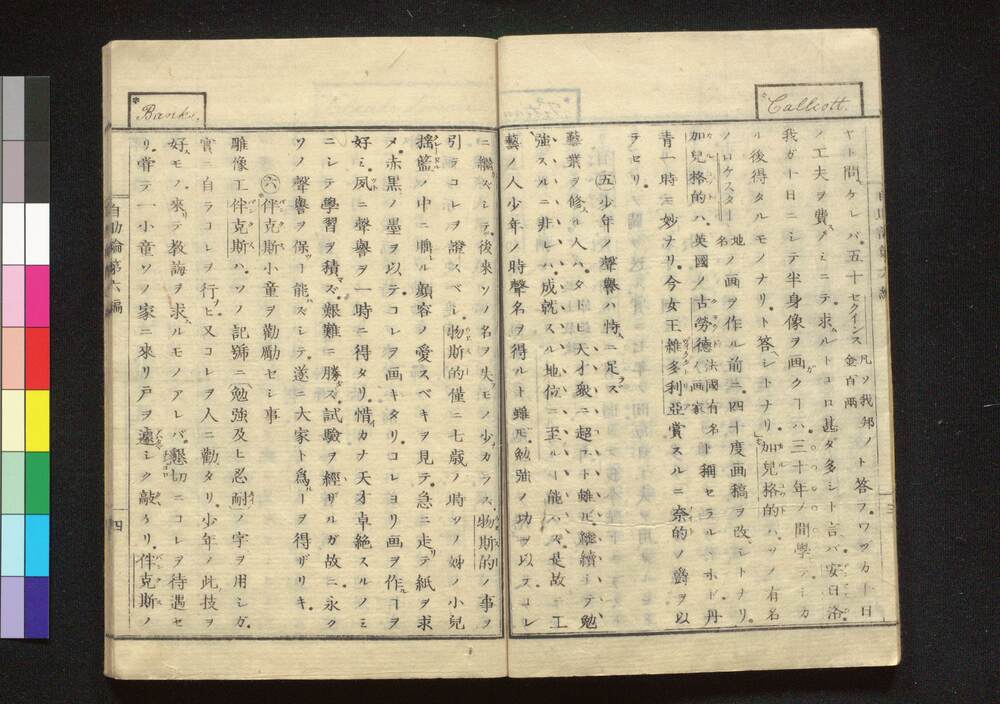 Callcott.
ヤト問ケレバ。五十セクインス 凡ソ我邦ノ金百兩 ト答フ。ワヅカ十日
ノ工夫ヲ費スノミニテ。求ルトコロ甚ダ多シト言バ。安日洛
我ガ十日ニシテ半身像ヲ画クコハ三十年ノ間學テシカ
ル後得タルモノナリ。ト答シトナリ。加兒格的ハソノ有名
ノロケスター 地名 ノ画ヲ作ル前ニ。四十度画稿ヲ改シトナリ。
加兒格的ハ。英國ノ古勞德 法國有名ノ画家 ト稱セラルシホド丹
青一時ニ妙ナリ。今女王維多利亞賞スルニ奈的ノ爵ヲ以
テセリ。
五 少年ノ聲譽ハ恃ニ足ズ
藝業ヲ修ル人ハ。タトヒ天才衆ニ超ユト雖𪜈。繼續シテ勉
強スルニ非レハ。成就スル地位ニ至ルコ能ハズ。是故ニ工
藝ノ人少年ノ時聲名ヲ得ルト雖𪜈。勉強ノ功ヲ以テコレ
Banks.
ニ繼ズシテ。後來ソノ名ヲ失フモノ少カラズ。物斯的ノ事ヲ
引テコレヲ證スベシ。物斯的僅ニ七歳ノ時ソノ姉ノ小兒
搖籃ノ中ニ臥ル顔容ノ愛スベキヲ見テ。急ニ走テ紙ヲ求
メ。赤黒ノ墨ヲ以テコレヲ画キタリ。コレヨリ画ヲ作コヲ
好ミ。夙ニ聲譽ヲ一時ニ得タリ。惜イカナ天才卓絶スルノミ
ニシテ學習ヲ積マズ。艱難ニ勝ズ。試驗ヲ經ザルガ故ニ。永ク
ソノ聲譽ヲ保コ能ハズシテ。遂ニ大家ト爲コヲ得ザリキ。
六 伴克斯小童ヲ勸勵セシ事
雕像工伴克斯ハ。ソノ記號ニ勉強及ヒ忍耐ノ字ヲ用シガ。
實ニ自ラコレヲ行ヒ又コレヲ人ニ勸タリ。少年ノ此技ヲ
好モノ。來テ教誨ヲ求ルモノアレバ。懇切ニコレヲ待遇セ
リ。嘗テ一小童ソノ家ニ來リ戸ヲ遽シク敲ケリ。伴克斯ノ
自助論第六編
四